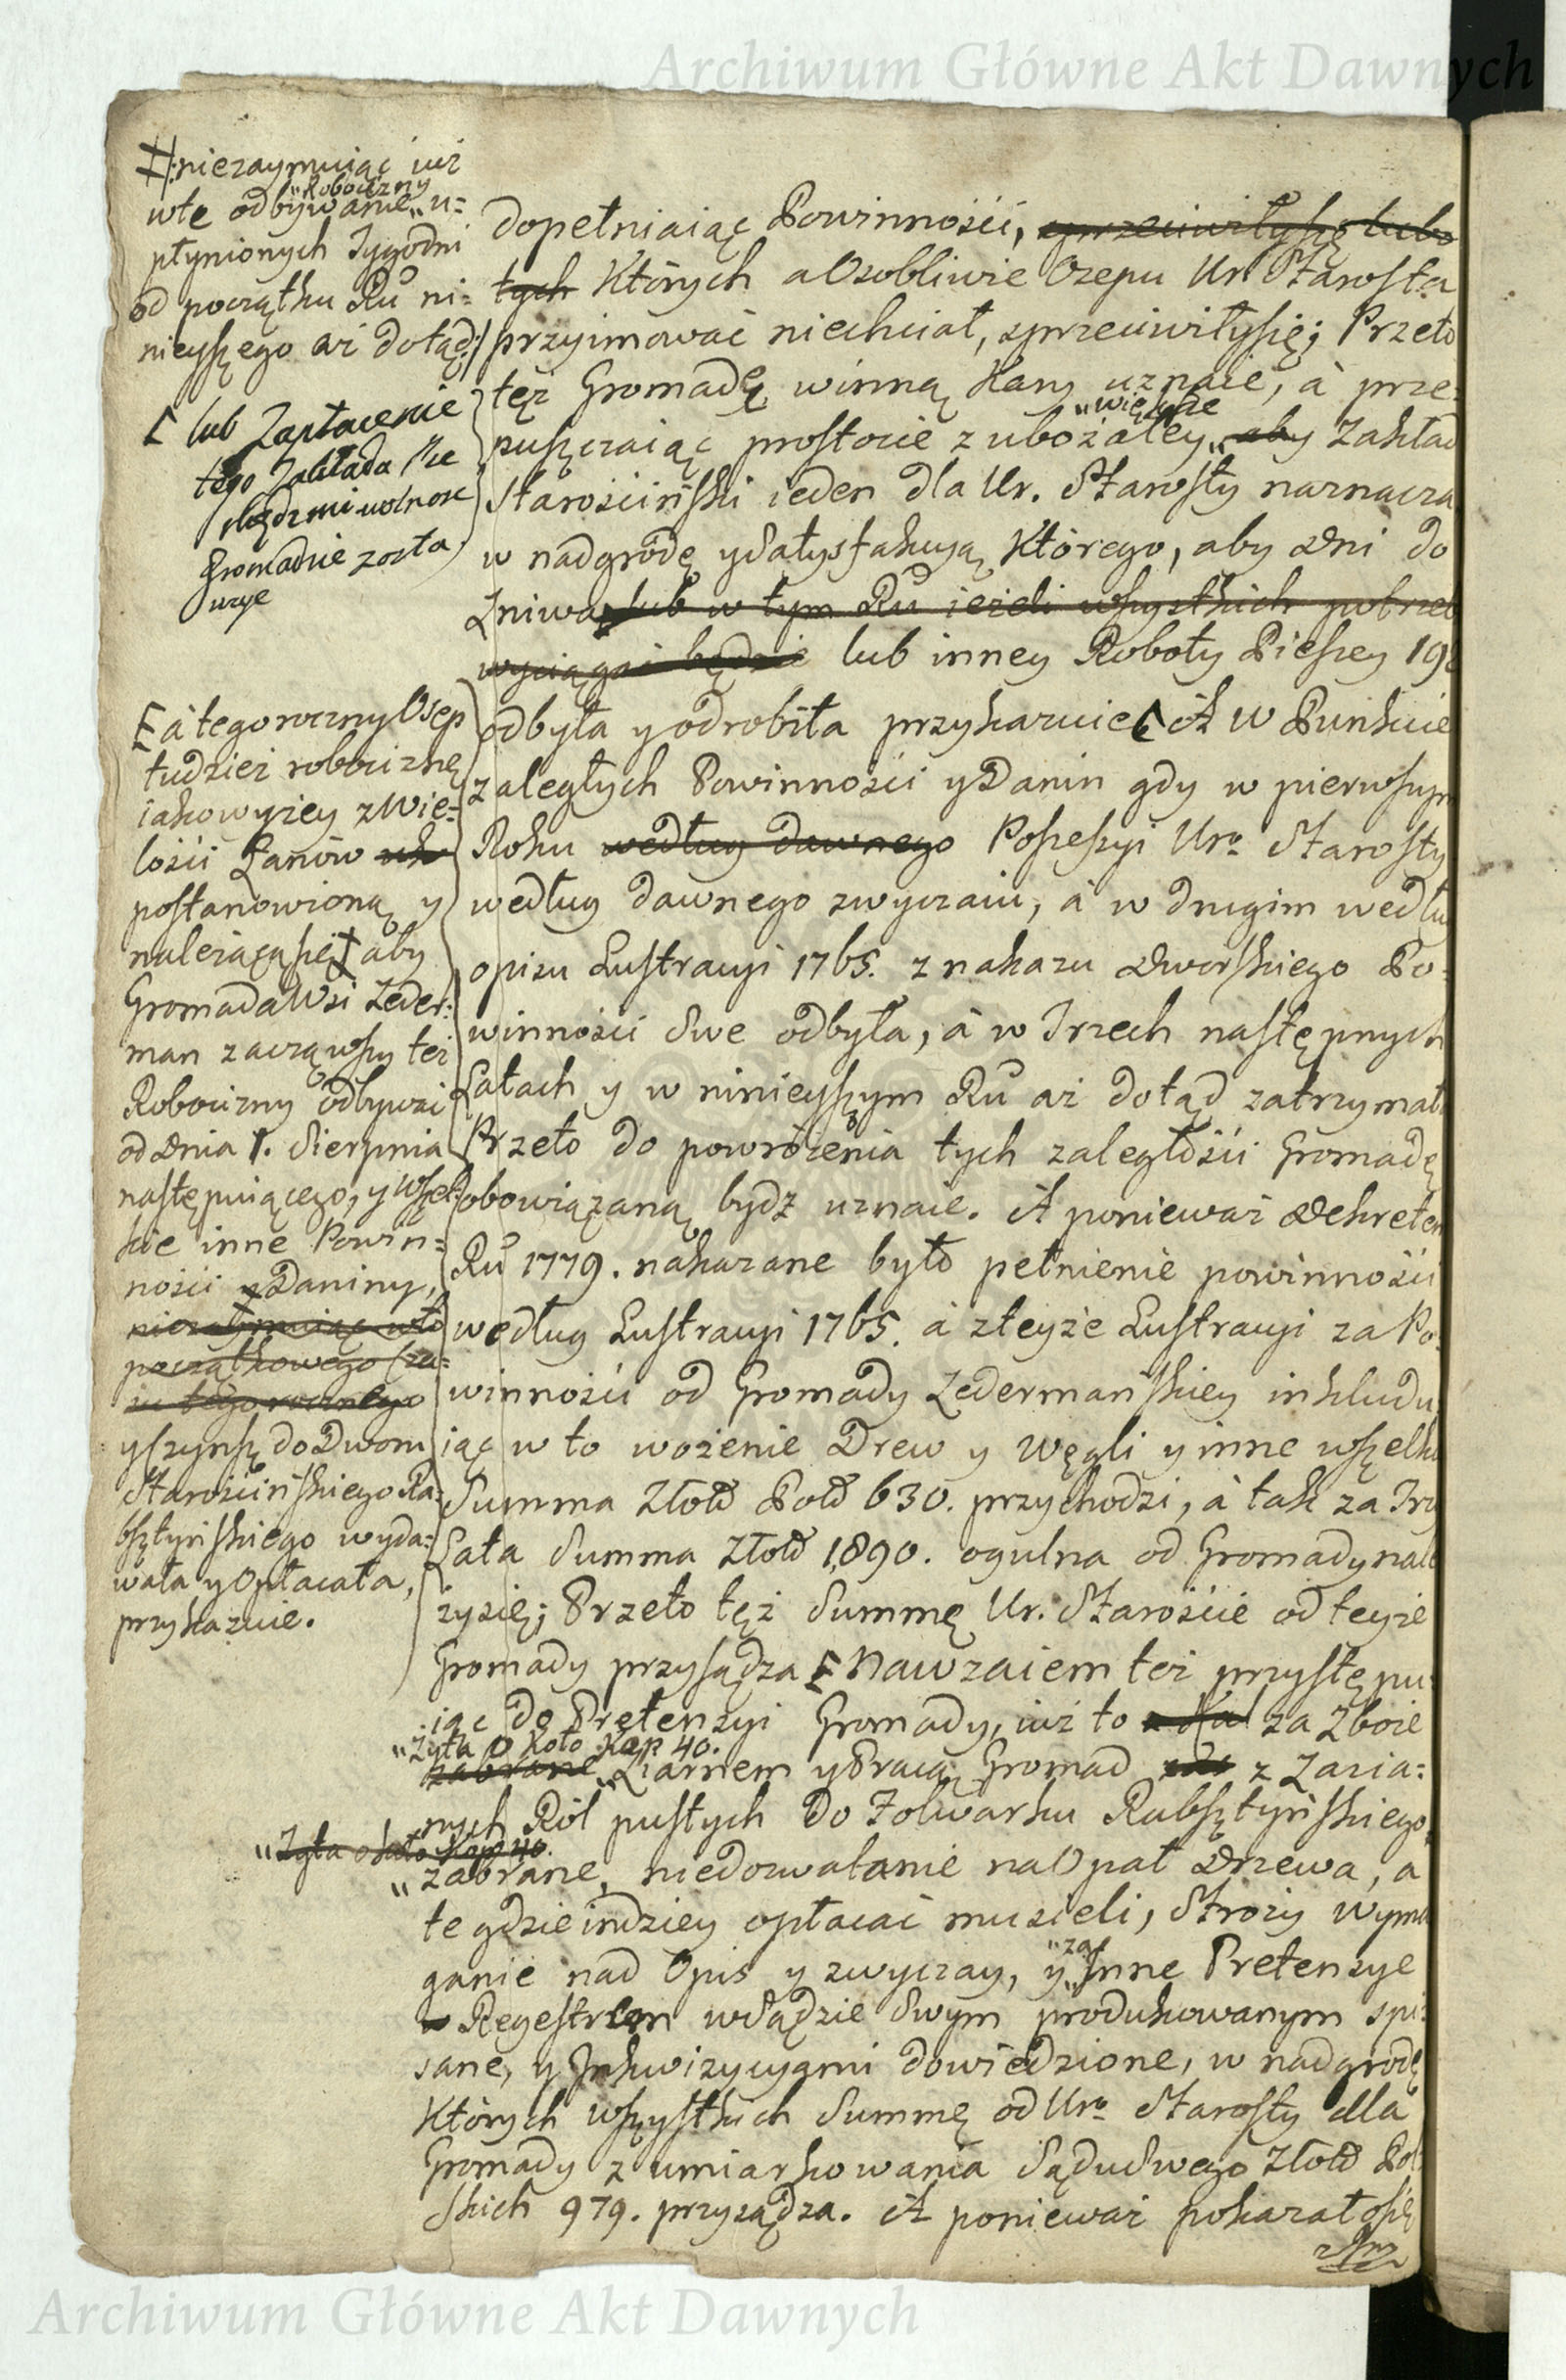 Archiwum Główne Akt Dawnych
#niezaymuiąc iuż
wtę odbywanie „Robocizny„ u=
płynionych Tygodni
od początku Rũ ni=
nieyszego aż dotąd/
[ lub Zapłacenie
tego Zakłada
wolnosc
Gromadzie zosta
uzye
[ à tegoroczny Osep
tudzież robociznę
iakowyżey zWie=
lości Łanów
postanowioną y
nalezącąsię aby
Gromada Wsi Zeder=
man zacząwszy też
Robocizny odbywać
od Dnia 1. Sierpnia
następuiącego, y wszel=
kie inne Powin=
ności y Daniny,
niezaymuiąc wto
początkowego Cza=
su tegorocznego
yCzynsz do Dworu
Starościńskiego Ra=
bsztyńskiego wyda=
wała y Opłacała,
przykazuie.
dopełniaiąc Powinności, sprzeciwiłysię lubo
tych Których a Osobliwie Ozepu Ur. Starosta
przyimować niechciał, sprzeciwiłysię; Przeto
tęż Gromadę winną Kary uznaie, à prze=
puszczaiąc prostocie zubożałey „większe aby Zakład
Starościński ieden dla Ur. Starosty naznacza
w nadgrodę ysatysfakcyą Którego, aby Dni do
Zniwa lub w tym Rũ ieżeli wszystkich potrzeb
wyciągać będzie lub inney Roboty Pieszey 19
odbyła y odrobiła przykazuie [ A w Punkcie
zaległych Powinności y Danin gdy w pierwszym
Roku według dawnego Possessyi Uro Starosty
według dawnego zwyczaiu, à w drugim wedłu
opisu Lustracyi 1765. z nakazu Dworskiego Po=
winności Swe odbyła, à w Trzech następnych
Latach y w ninieyszym Rũ aż dotąd zatrzymała
Przeto do powrócenia tych zaległości Gromadę
obowiązaną bydz uznaie. A ponieważ Dekretem
Rũ 1779. nakazane było pełnienie powinności
według Lustracyi 1765. à zteyże Lustracyi za Po=
winności od Gromady Zedermańskiey inkludu
iąc w to wożenie Drew y Węgli y inne wszelkie
Summa Złotd Pold 630. przychodzi, à tak za Trzy
Lata Summa Złotd 1,890. ogulna od Gromady nale
zysię; Przeto tęż Summę Ur. Staroście od teyże
Gromady przysądza [ Nawzaiem też przystępu=
iąc do Pretensyi Gromady, iuż to za Zboże
„Zyta o koło Kop 40.
zabrane „Ziarnem y Pracą Gromad z Zasia=
nych Ról pustych do Folwarku Rabsztyńskiego
„Zyta o koło Kop 40.
„zabrane, niedozwalanie na Opał Drzewa, a
te gdzieindziey opłacać musieli, Stroży wyma
ganie nad Opis y zwyczay, y „za„ Inne Pretensye
Regestrem wSądzie Swym produkowanym spi=
sane, y Inkwizycyami dowiedzione, w nadgrodę
Których wszystkich Summę od Uro Starosty dla
Gromady z umiarkowania Sądu Swego Złotd Pol
skich 979. przysądza. A ponieważ pokazałosię
Archiwum Główne Akt Dawnych